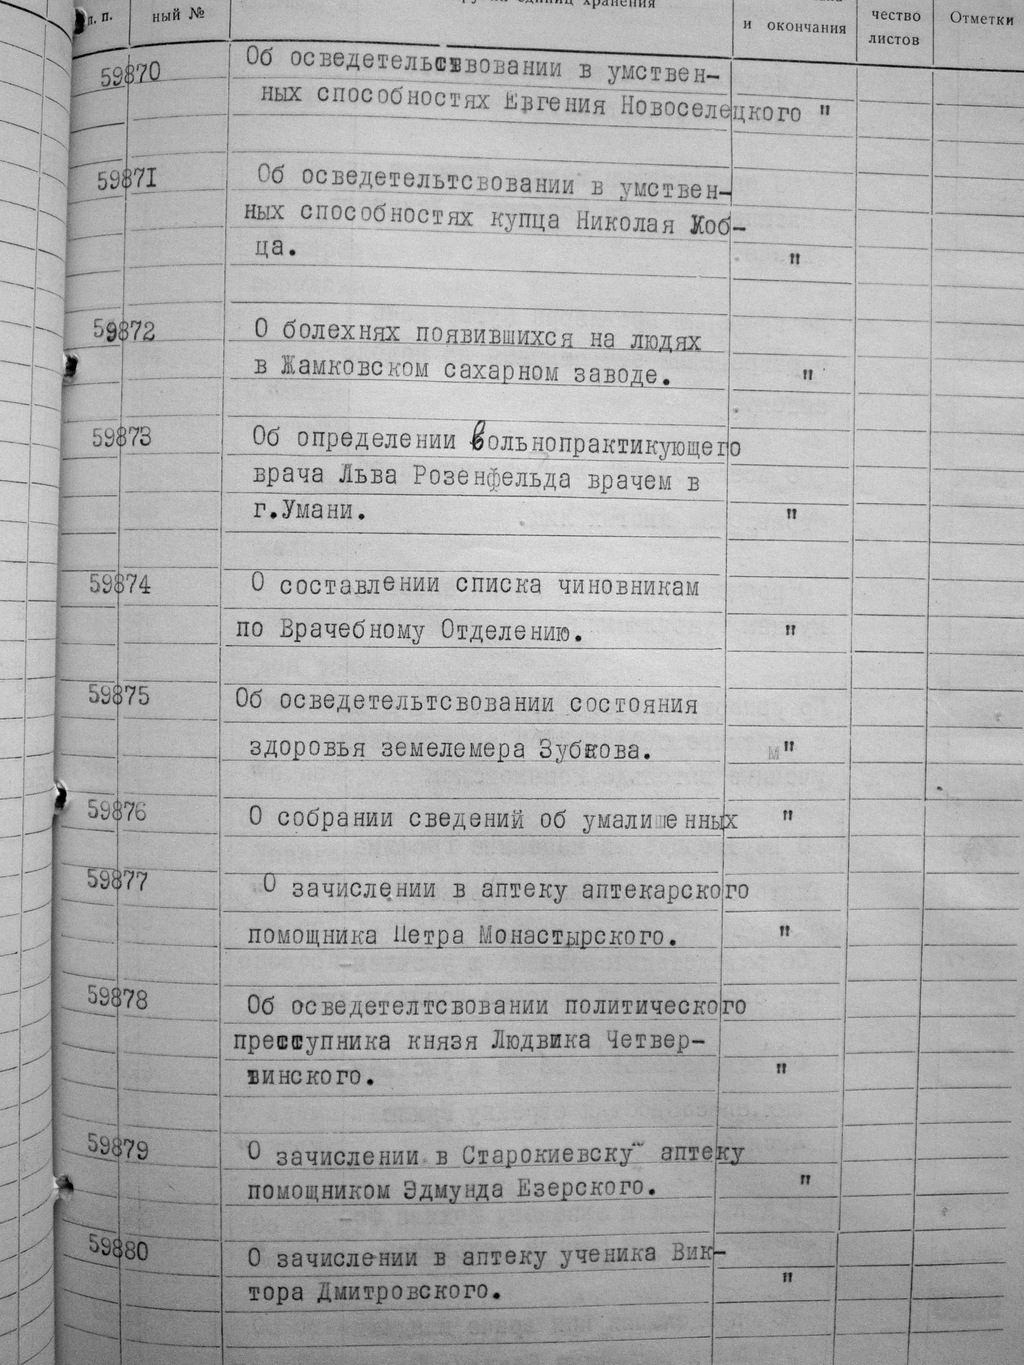 п. п.
ный №
единиц хранения
и окончания
чество
листов
Отметки
59870
Об осведетельствовании в умствен-
ных способностях Евгения Новоселецкого "
59871
Об осведетельтсвовании в умствен-
ных способностях купца Николая Коб-
ца. "
59872
О болехнях появившихся на людях
в Жамковском сахарном заводе. "
59873
Об определении вольнопрактикующего
врача Льва Розенфельда врачем в
г.Умани. "
59874
О составлении списка чиновникам
по Врачебному Отделению. "
59875
Об осведетельтсвовании состояния
здоровья земелемера Зубкова. м"
59876
О собрании сведений об умалишенных "
59877
О зачислении в аптеку аптекарского
помощника Петра Монастырского. "
59878
Об осведетелтсвовании политического
преступника князя Людвика Четвер-
винского. "
59879
О зачислении в Старокиевску аптеку
помощником Эдмунда Езерского. "
59880
О зачислении в аптеку ученика Вик-
тора Дмитровского. "